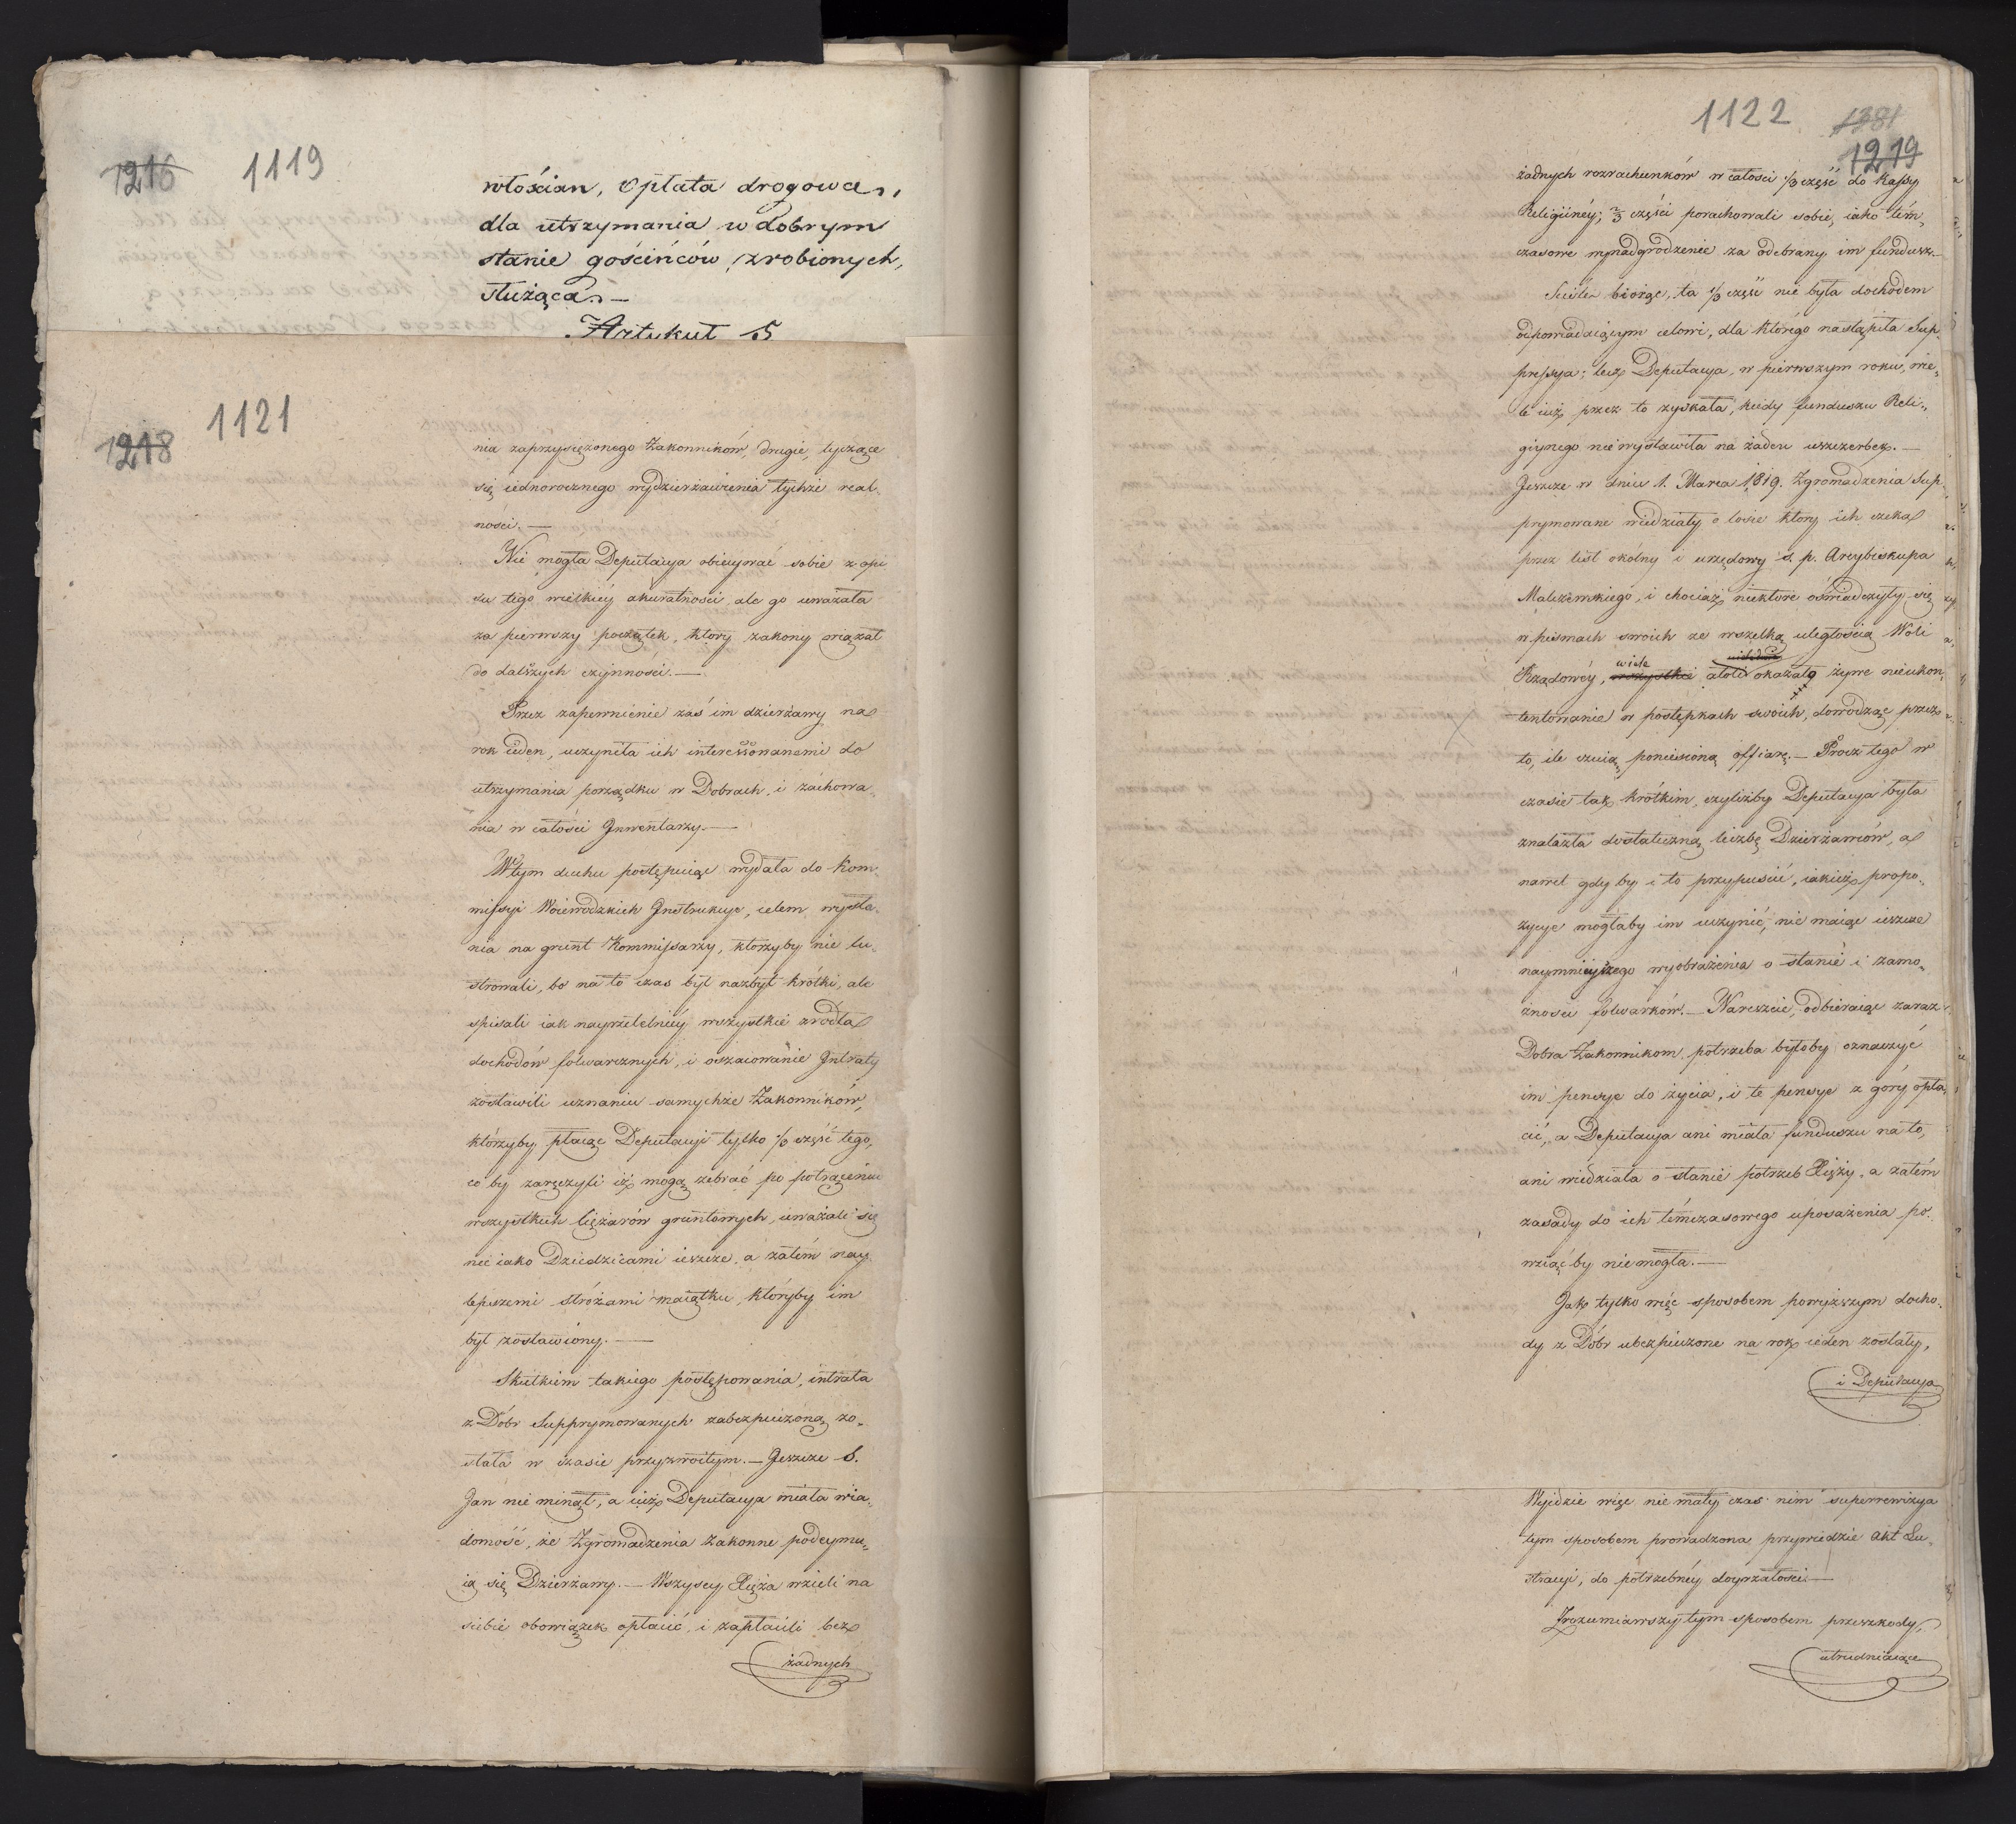 1216 1119
włościan, Opłata drogowa,
dla utrzymania w dobrym
stanie gościńców, zrobionych,
służąca. —
Artykuł 5
1218 1121
nia zaprzysiężonego Zakonników, drugie, tyczące
się iednorocznego wydzierżawienia tychże real„
ności. —
Nie mogła Deputacya obiecywać sobie z opi
su tego wielkiey akuratności, ale go uważała
za pierwszy początek, który zakony wiązał
do dalszych czynności. —
Przez zapewnienie zaś im dzierżawy na
rok ieden, uczyniła ich interessowanemi do
utrzymania porządku w Dobrach, i zachowa„
nia w całości Inwentarzy. —
W tym duchu postępuiąc wydała do Kom„
missyi Woiewodzkich Instrukcye, celem wysła„
nia na grunt Kommissarzy, którzyby nie lu„
strowali, bo na to czas był nazbyt krótki, ale
spisali iak nayrzetelniey wszystkie zrodła
dochodów folwarcznych, i oszacowanie Intraty
zostawili uznaniu samychże Zakonników,
którzyby płacąc Deputacyi tylko 1/3 część tego,
co by zaręczyli iż mogą zebrać po potrąceniu
wszystkich ciężarów gruntowych, uważali się
nie iako Dziedzicami ieszcze, a zatém nay„
lepszemi stróżami maiątku, któryby im
był zostawiony. —
Skutkiem takiego postępowania, intrata
z Dóbr Supprymowanych zabezpieczoną zo„
stała w czasie przyzwoitym. — Jeszcze S.
Jan nie minął, a iuż Deputacya miała wia„
domość, że Zgromadzenia Zakonne podeymu„
ią się Dzierżawy. — Wszyscy Xięża wzieli na
siebie obowiązek opłacić, i zapłacili bez
żadnych
1122 1381
1219
żadnych rozrachunków w całości 1/3 część do Kassy
Religiinéy; 2/3 części porachowali sobie, iako tém„
czasowe wynadgrodzenie za odebrany im fundusz. —
Scisle biorąc, ta 1/3 część nie była dochodem
odpowiadaiącym celowi, dla którego nastąpiła Sup„
pressya; lecz Deputacya, w pierwszym roku, wie„
le iuż przez to zyskała, kiedy funduszu Reli„
giynego nie wystawiła na żaden uszczerbek. —
Jeszcze w dniu 1. Marca 1819. Zgromadzenia Sup„
prymowane wiedziały o losie który ich czeka
przez list okólny i urzędowy ś. p. Arcybiskupa
Malczewskiego, i chociaż niektóre oświadczyły się
w pismach swoich ze wszelką uległością Woli
Rządowéy, wszystkie wiele atoli okazało żywe nieukon„
tentowanie w postępkach swoich, dowodząc przez
to, ile czuią poniesioną offiarę. — Procz tego w
czasie tak krótkim, czyliżby Deputacya była
znalazła dostateczną liczbę Dzierżawców, a
nawet gdy by i to przypuścić, iakież propo„
zycye mogłaby im uczynić, nie maiąc ieszcze
naymnieyszego wyobrażenia o stanie i zamo„
żności folwarków. — Nareszcie, odbieraiąc zaraz
Dobra Zakonnikom, potrzeba byłoby oznaczyć
im pensye do życia, i te pensye z góry opła„
cić, a Deputacya ani miała funduszu na to,
ani wiedziała o stanie potrzeb Xięży, a zatém
zasady do ich témczasowego uposażenia po„
wziąć by nie mogła. —
Jak tylko więc sposobem powyższym docho„
dy z Dóbr ubezpieczone na rok ieden zostały,
i Deputacya
Wyidzie więc nie mały czas nim superrewizya
tym sposobem prowadzona przywiedzie akt Lu„
stracyi, do potrzebnéy doyrzałości. —
Zrozumiawszy tym sposobem przeszkody,
utrudniaiące